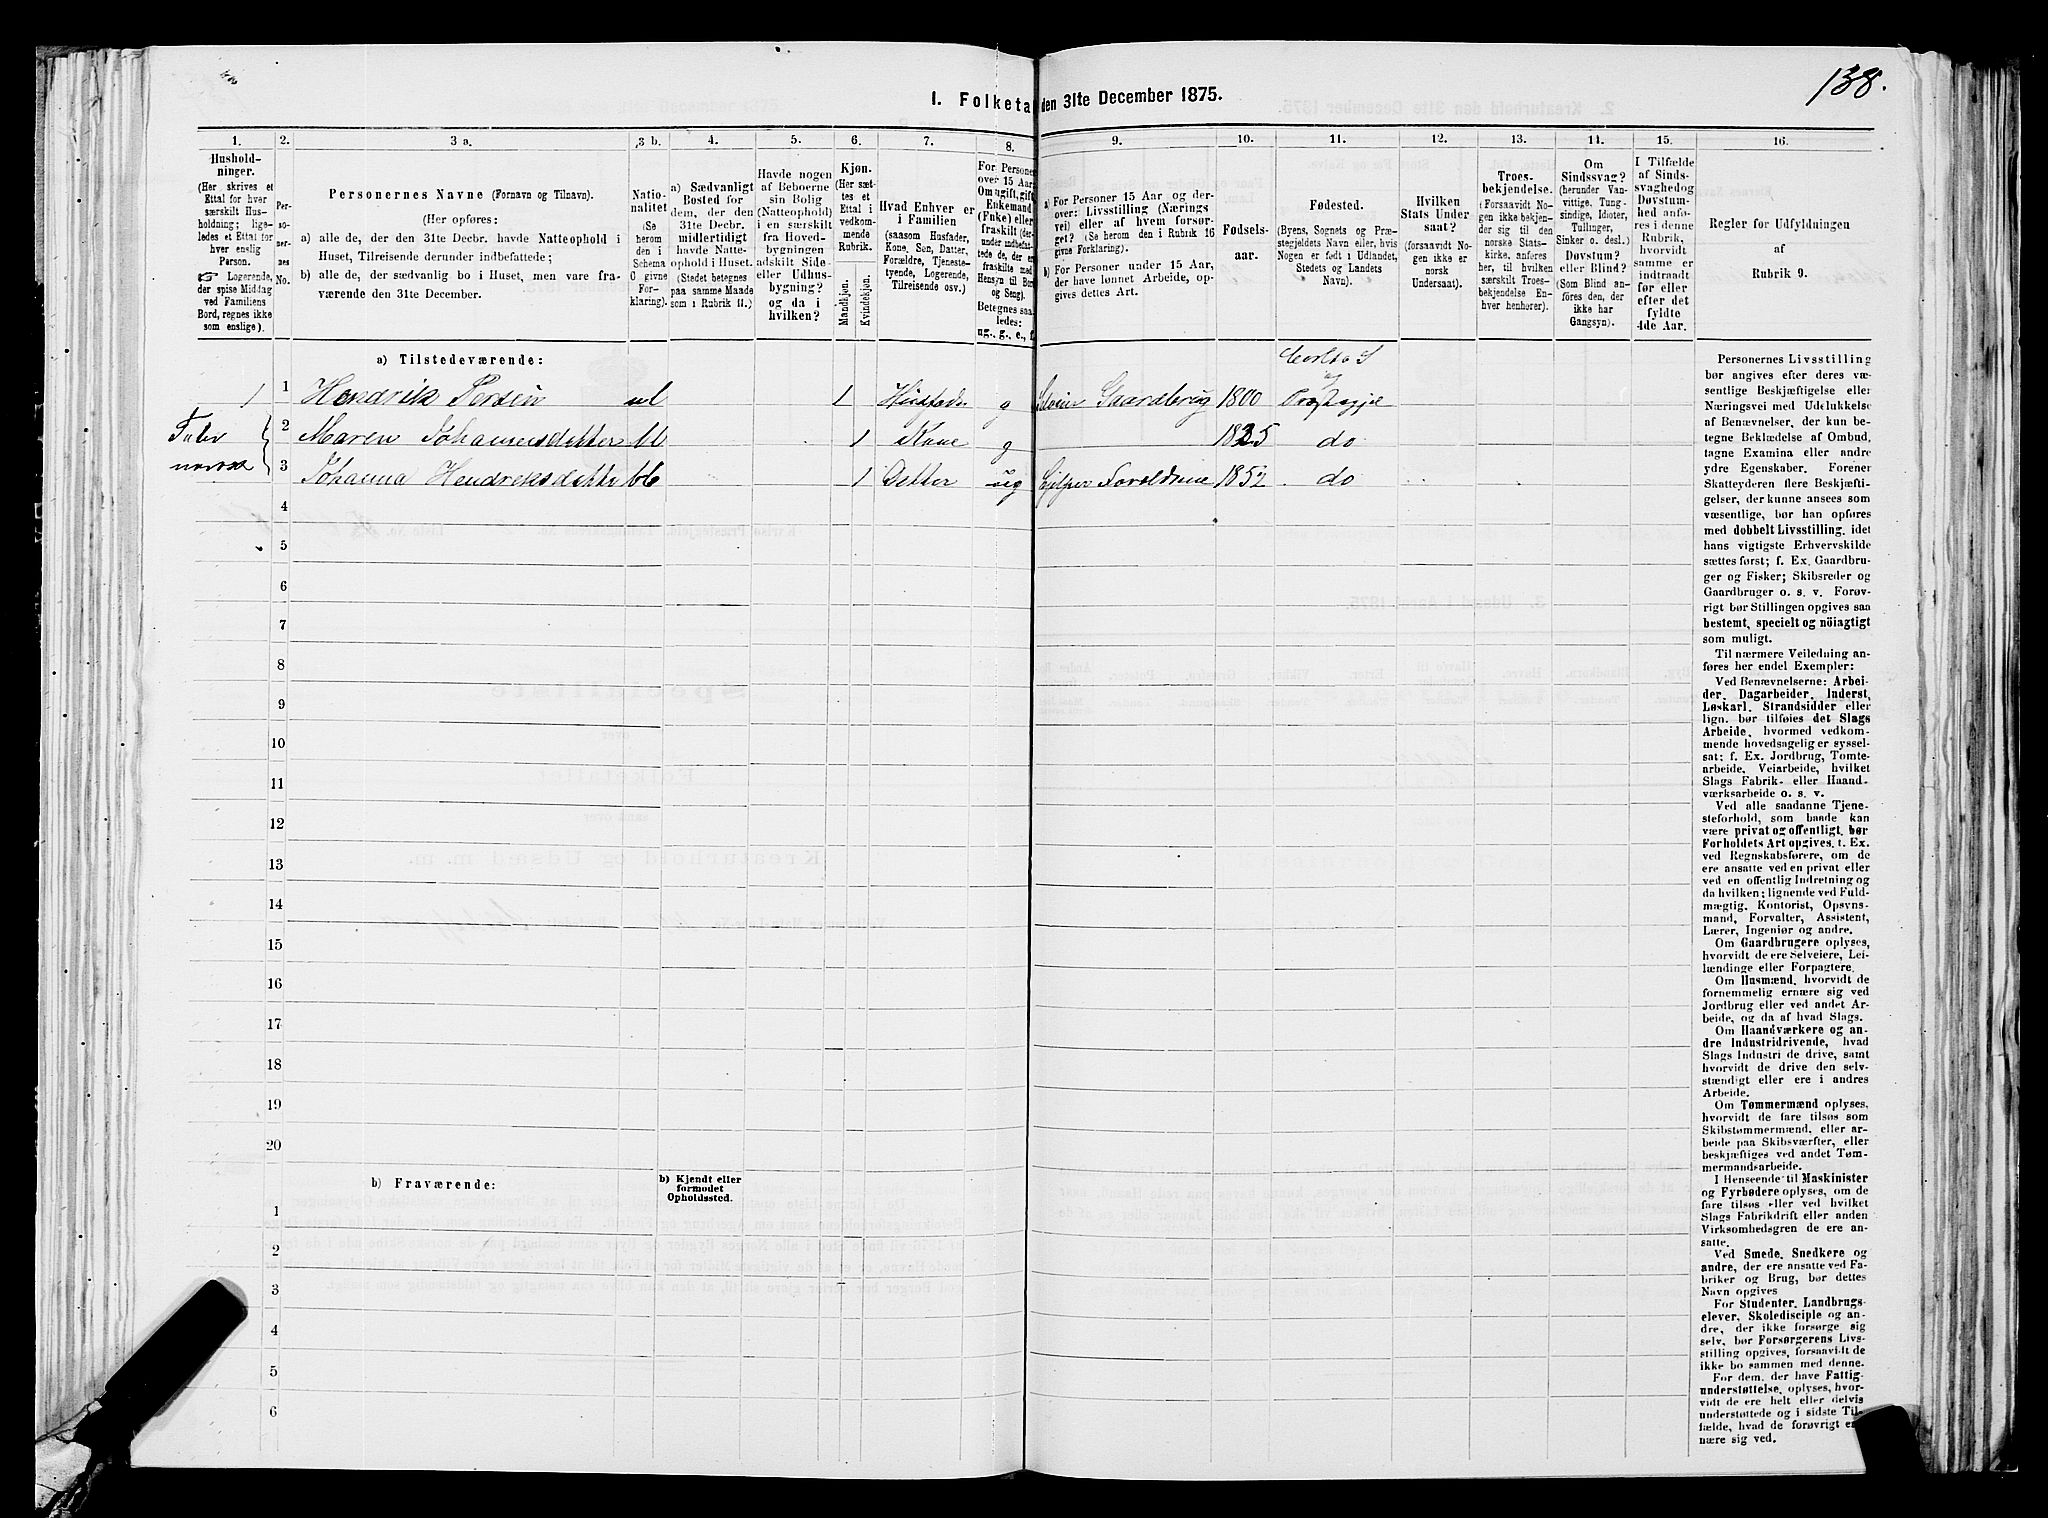 138.
I. Folketal den 31te December 1875.
1.
Hushold-
ninger.
(Her skrives et
Ettal for hver
særskilt Hus-
holdning; lige-
ledes et Ettal for
hver enslig
Person.
☞ Logerende,
der spise Middag
ved Familiens
Bord, regnes ikke
som enslige).
2.
Per-
so-
ner-
nes
No.
3 a.
Personernes Navne (Fornavn og Tilnavn).
(Her opføres:
a) alle de, der den 31te Decbr. havde Natteophold i
Huset, Tilreisende derunder indbefattede;
b) alle de, der sædvanlig bo i Huset, men vare fra-
værende den 31te December.
3 b.
Natio-
nalitet
(Se
herom
den i
Schema
O givne
For-
klaring).
4.
a) Sædvanligt
Bosted for
dem, der den
31te Decbr.
midlertidigt
havde Natte-
ophold i Huset.
(Stedet betegnes
paa samme Maade
som i Rubrik 11.)
5.
Havde nogen
af Beboerne
sin Bolig
(Natteophold)
i en særskilt
fra Hoved-
bygningen
adskilt Side-
eller Udhus-
bygning?
og da i
hvilken?
6.
Kjøn.
(Her sæt-
tes et
Ettal i
vedkom-
mende
Rubrik.
Mandkjøn.
Kvindekjøn.
7.
Hvad Enhver er
i Familien
(saasom Husfader,
Kone, Søn, Datter,
Forældre, Tjeneste-
tyende, Logerende,
Tilreisende osv.)
8.
For Personer
over 15 Aar:
Om ugift, gift,
Enkemand
(Enke) eller
fraskilt (der-
under indbefat-
tede de, der ere
fraskilte med
Hensyn til Bord
og Seng).
Betegnes saa-
ledes:
ug., g., e., f.
9.
a) For Personer 15 Aar og der-
over: Livsstilling (Nærings-
vei) eller af hvem forsør-
get? (Se herom den i Rubrik 16
givne Forklaring).
b) For Personer under 15 Aar,
der have lønnet Arbeide, op-
gives dettes Art.
10.
Fødsels-
aar.
11.
Fødested.
(Byens, Sognets og Præ-
stegjeldets Navn eller, hvis
Nogen er født i Udlandet,
Stedets og Landets
Navn).
12.
Hvilken
Stats Under-
saat?
(forsaavidt No-
gen ikke er
norsk
Undersaat).
13.
Troes-
bekjendelse.
(Forsaavidt No-
gen ikke bekjen-
der sig til den
norske Stats-
kirke, anføres
her, til hvilken
særskilt Troes-
bekjendelse En-
hver henhører).
14.
Om
Sindssvag?
(herunder Van-
vittige, Tung-
sindige, Idioter,
Tullinger,
Sinker o. desl.)
Døvstum?
eller Blind?
(Som Blind an-
føres den, der
ikke har
Gangsyn).
15.
I Tilfælde
af Sinds-
svaghed og
Døvstum-
hed anfø-
res i denne
Rubrik,
hvorvidt
samme er
indtraadt
før eller
efter det
fyldte
4de Aar.
16.
Regler for Udfyldningen
af
Rubrik 9.
a) Tilstedeværende:
1 1 Hendrik Persen 1 Husfader g Gaardbrug 1800 Præstegjel
2 Maren Johannesdatter 1 Kone g 1825 do
3 Johanna Hendreksdatter 1 Datter ug Hjelper Foreldrene 1852 do
4
5
6
7
8
9
10
11
12
13
14
15
16
17
18
19
20
b) Fraværende:
b) Kjendt eller
formodet
Opholdssted.
1
2
3
4
5
6
Personernes Livsstilling
bør angives efter deres væ-
sentlige Beskjæftigelse eller
Næringsvei med Udelukkelse
af Benævnelser, der kun be-
tegne Beklædelse af Ombud,
tagne Examina eller andre
ydre Egenskaber. Forener
Skatteyderen flere Beskjæfti-
gelser, der kunne ansees som
væsentlige, bør han opføres
med dobbelt Livsstilling, idet
hans vigtigste Erhvervskilde
sættes først; f. Ex. Gaardbru-
ger og Fisker; Skibsreder og
Gaardbruger o. s. v. Forøv-
rigt bør Stillingen opgives saa
bestemt, specielt og nöiagtigt
som muligt.
Til nærmere Veiledning an-
føres her endel Exempler:
Ved Benævnelserne: Arbei-
der, Dagarbeider, Inderst,
Løskarl, Strandsidder eller
lign. bør tilføies det Slags
Arbeide, hvormed vedkom-
mende hovedsagelig er syssel-
sat; f. Ex. Jordbrug, Tomte-
arbeide, Veiarbeide, hvilket
Slags Fabrik- eller Haand-
værksarbeide o. s. v.
Ved alle saadanne Tjene-
steforhold, som baade kan
være privat og offentligt, bør
Forholdets Art opgives, f. Ex.
ved Regnskabsførere, om de
ere ansatte ved en privat eller
ved en offentlig Indretning og
da hvilken; lignende ved Fuld-
mægtig, Kontorist, Opsyns-
mand, Forvalter, Assistent,
Lærer, Ingeniør og andre.
Om Gaardbrugere oplyses,
hvorvidt de ere Selveiere, Lei-
lændinge eller Forpagtere.
Om Husmænd, hvorvidt de
fornemmelig ernære sig ved
Jordbrug eller ved andet Ar-
beide, og da af hvad Slags.
Om Haandværkere og an-
dre Industridrivende, hvad
Slags Industri de drive, samt
hvorvidt de drive den selv-
stændigt eller ere i andres
Arbeide.
Om Tømmermænd oplyses,
hvorvidt de fare tilsøs som
Skibstømmermænd, eller ar-
beide paa Skibsværfter, eller
beskjæftiges ved andet Tøm-
mermandsarbeide.
I Henseende til Maskinister
og Fyrbødere oplyses, om de
fare tilsøs eller ved hvilket
Slags Fabrikdrift eller anden
Virksomhedsgren de ere an-
satte.
Ved Smede, Snedkere og
andre, der ere ansatte ved Fa-
briker og Brug, bør dettes
Navn opgives
For Studenter, Landbrugs-
elever, Skoledisciple og an-
dre, der ikke forsørge sig
selv, bør Forsørgerens Livs-
stilling opgives, forsaavidt de
ikke bo sammen med denne.
For dem, der have Fattig-
understøttelse, oplyses, hvor-
vidt de ere helt eller delvis
understøttede og i sidste Til-
fælde, hvad de forøvrigt er-
nære sig ved.